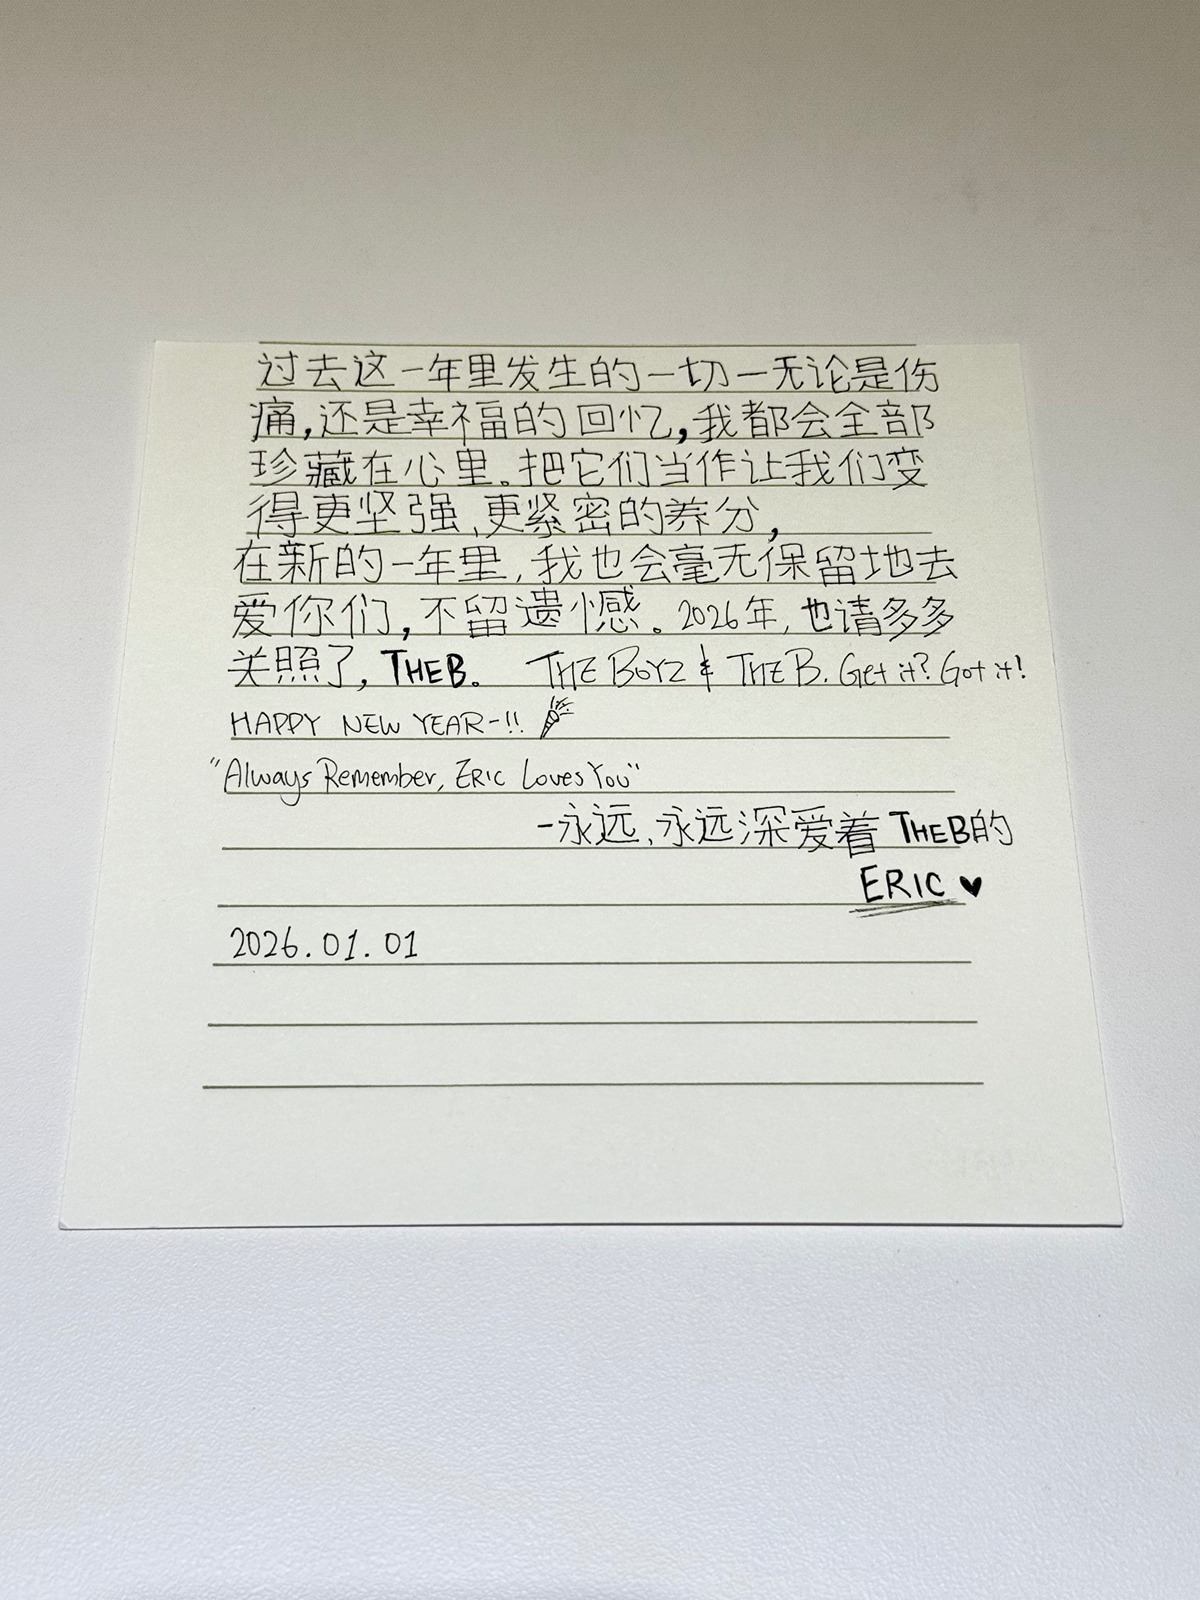 过去这一年里发生的一切—无论是伤
痛,还是幸福的回忆,我都会全部
珍藏在心里。把它们当作让我们变
得更坚强、更紧密的养分,
在新的一年里,我也会毫无保留地去
爱你们,不留遗憾。2026年,也请多多
关照了,THEB。 THE BOYZ & THE B. Get it? Got it!
HAPPY NEW YEAR-!!
"Always Remember, ERIC Loves You"
-永远、永远深爱着 THEB的
ERIC ♥
2026.01.01